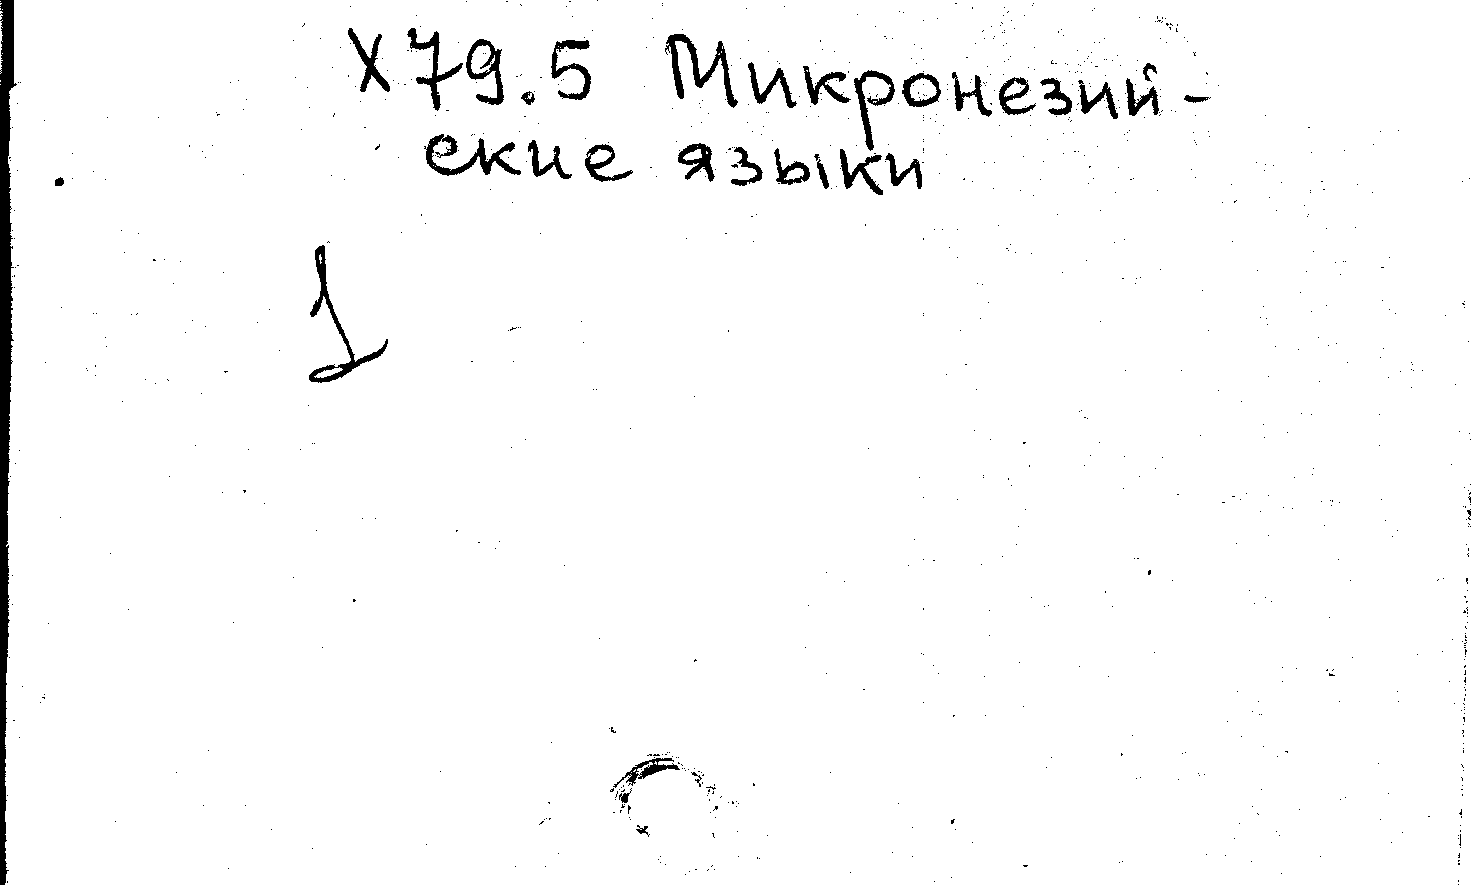 X79.5 Микронезий-
ские языки
1